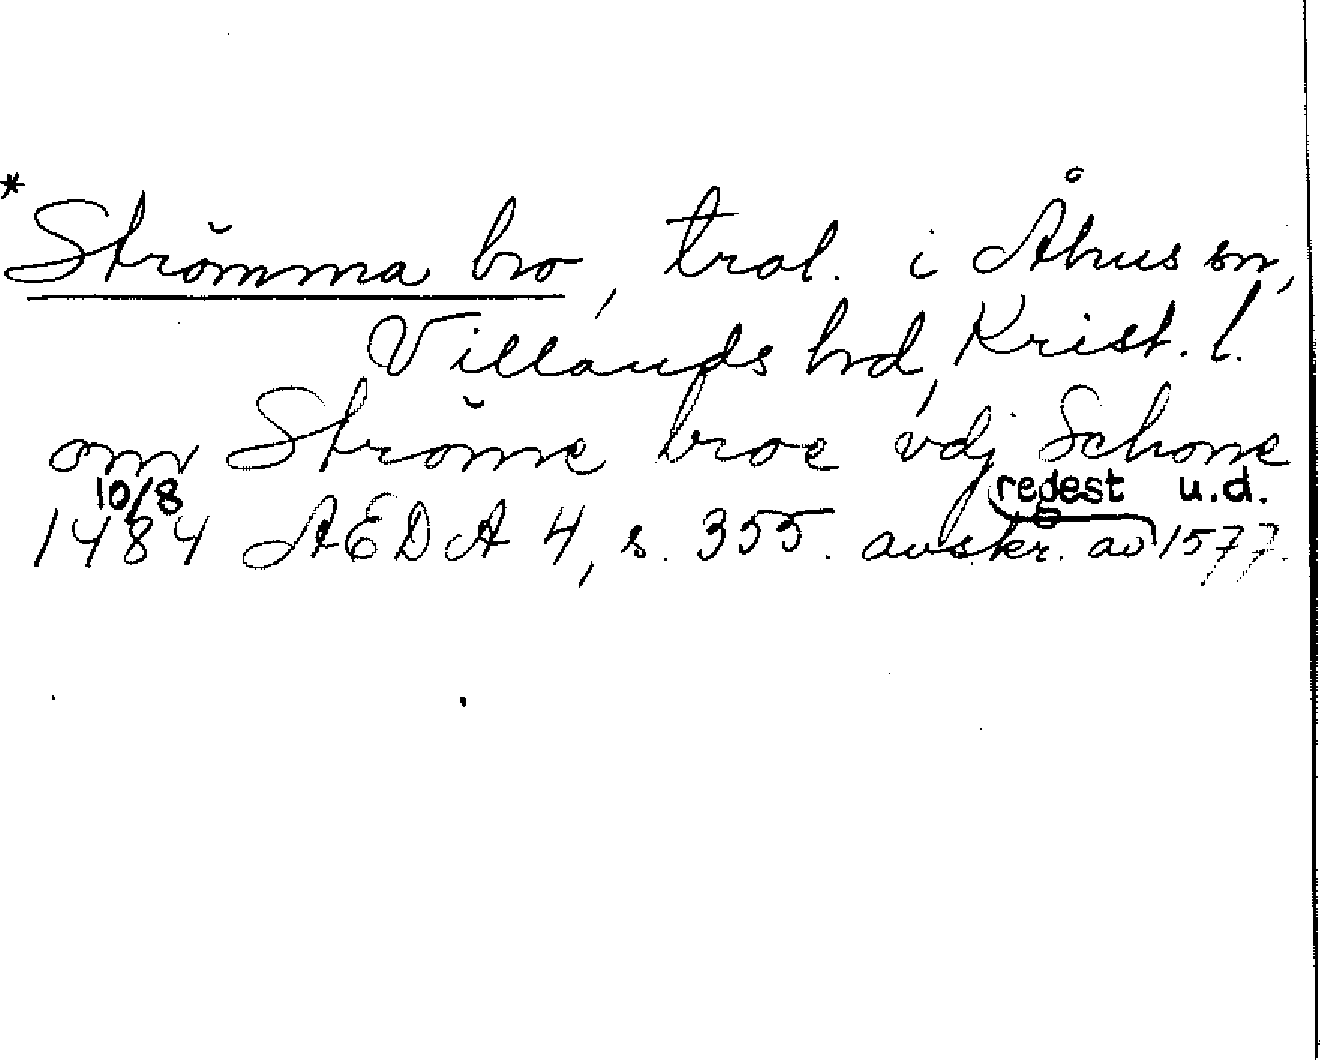 *Strömma bro, trol. i Åhus sn,
Villands hd, Krist. l.
om Ströme broe vdj Schone
10/8 regest u.d.
1484 AEDA 4, s. 355. avskr. av 1577.